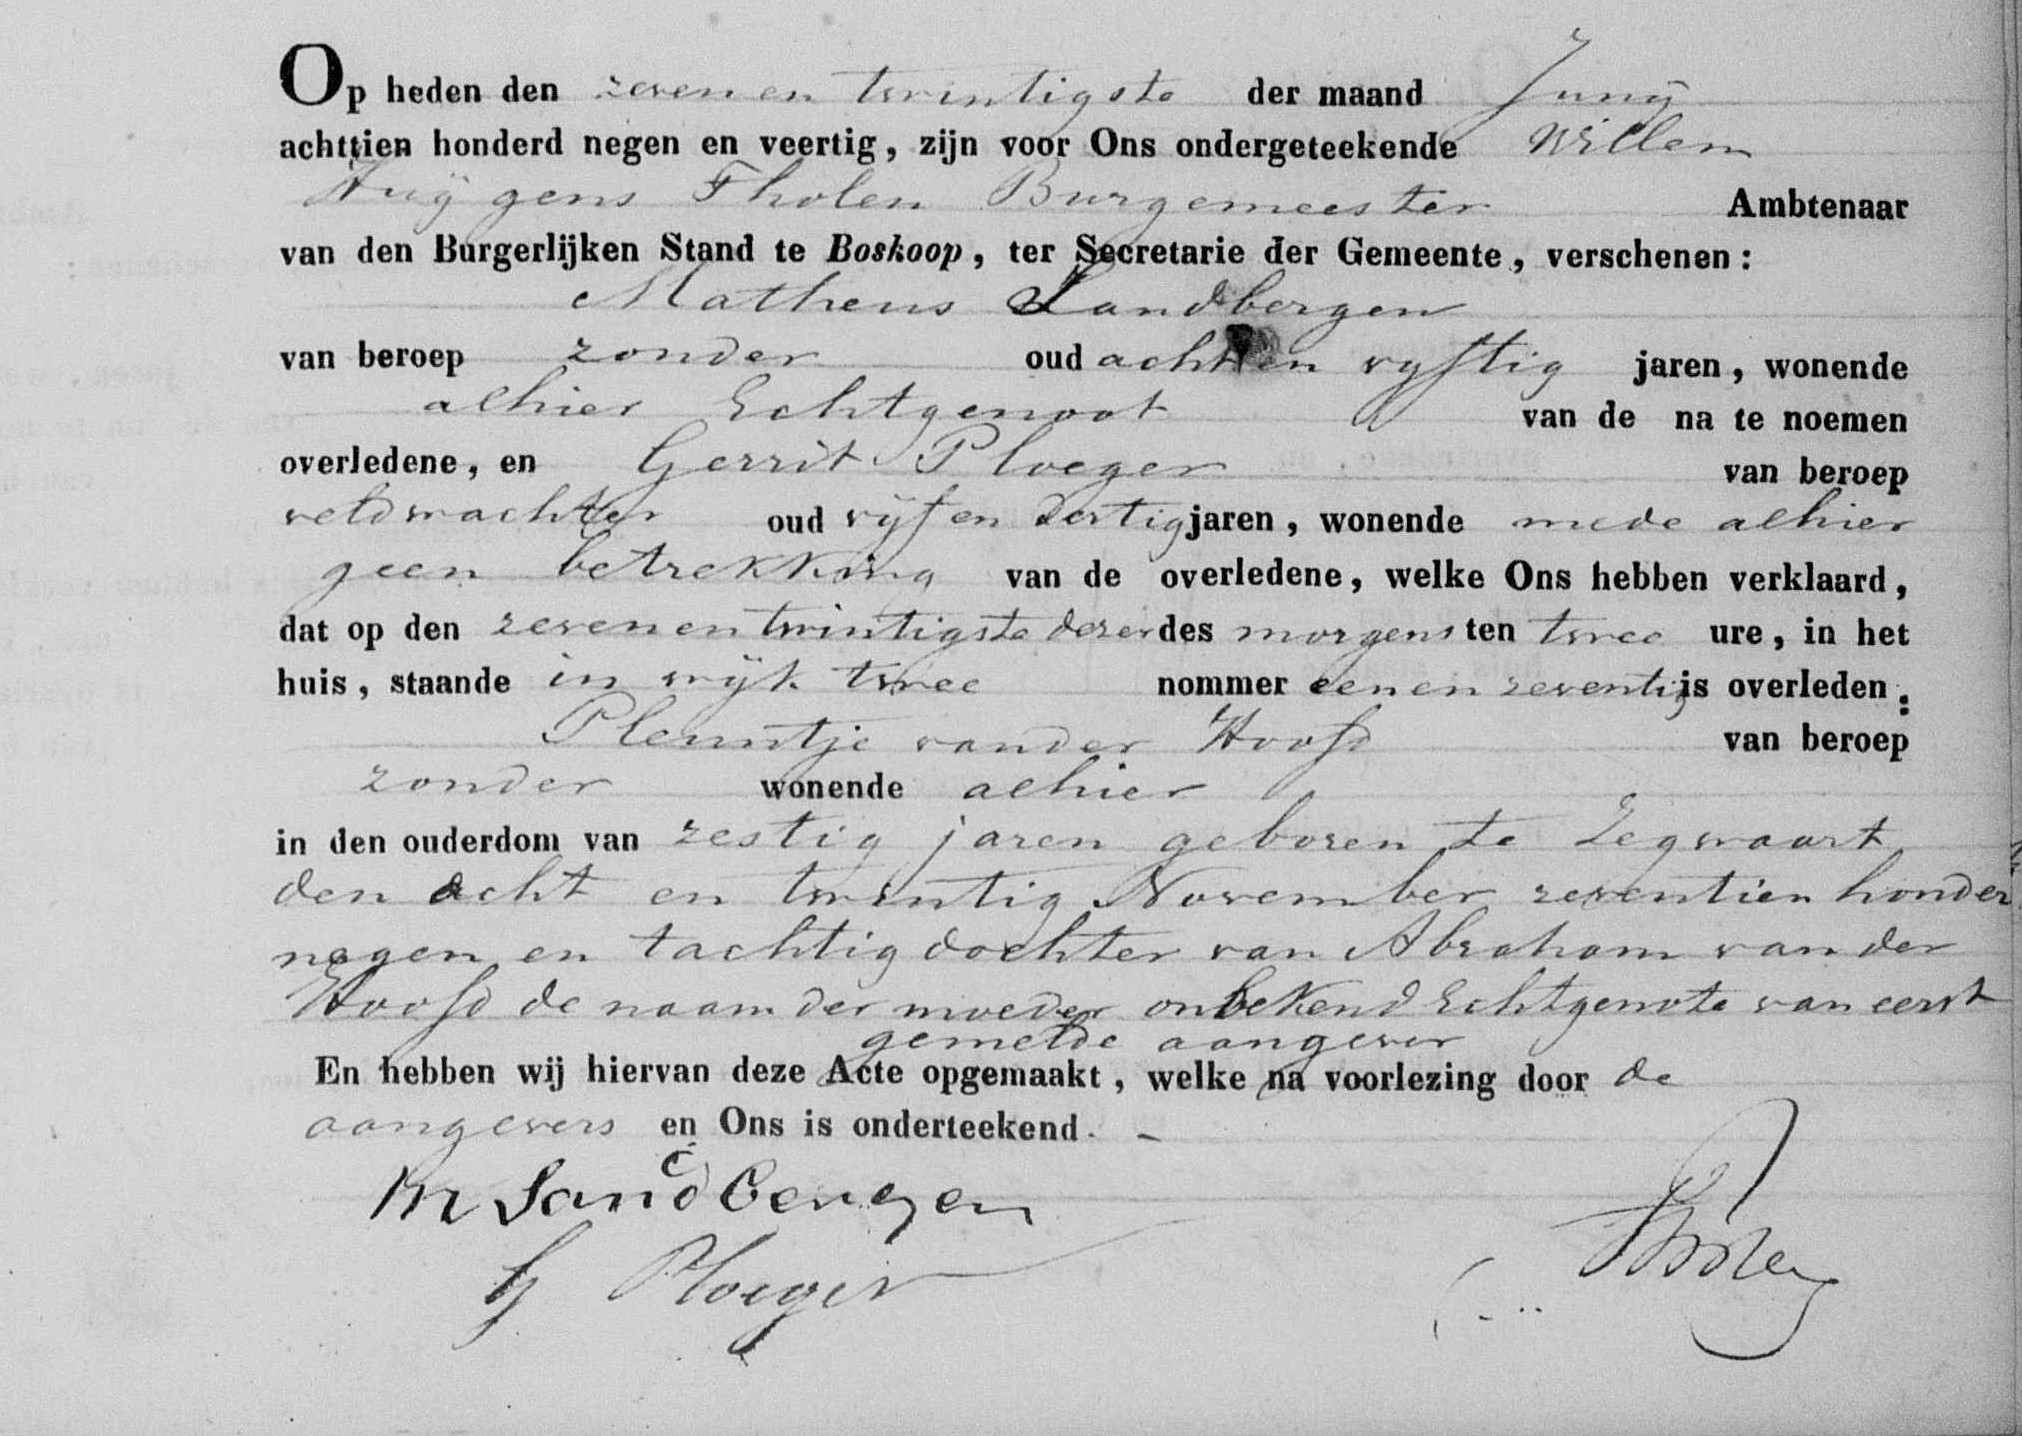 Op heden den zeven en twintigste der maand Junij
achttien honderd negen en veertig, zijn voor Ons ondergeteekende Willem
Huijgens Tholen Burgemeester Ambtenaar
van den Burgerlijken Stand te Boskoop, ter Secretarie der Gemeente, verschenen:
Matheus Sandbergen
van beroep zonder oud acht en vyftig jaren, wonende
alhier Echtgenoot van de na te noemen
overledene, en Gerrit Ploeger van beroep
veldwachter oud vijf en dertig jaren, wonende mede alhier
geen betrekking van de overledene, welke Ons hebben verklaard,
dat op den zeven en twintigste dezer des morgens ten twee ure, in het
huis, staande in wijk twee nommer een en zeventig is overleden:
Pleuntje van der Hoofd van beroep
zonder wonende alhier
in den ouderdom van zestig jaren geboren te Zegwaart
den acht en twintig November zeventien honder
negen en tachtig dochter van Abraham van der
Hoofd de naam der moeder onbekend Echtgenote van eerst
gemelde aangever
En hebben wij hiervan deze Acte opgemaakt, welke na voorlezing door de
aangevers en Ons is onderteekend.
M Sandbergen
G Ploeger
Tholen